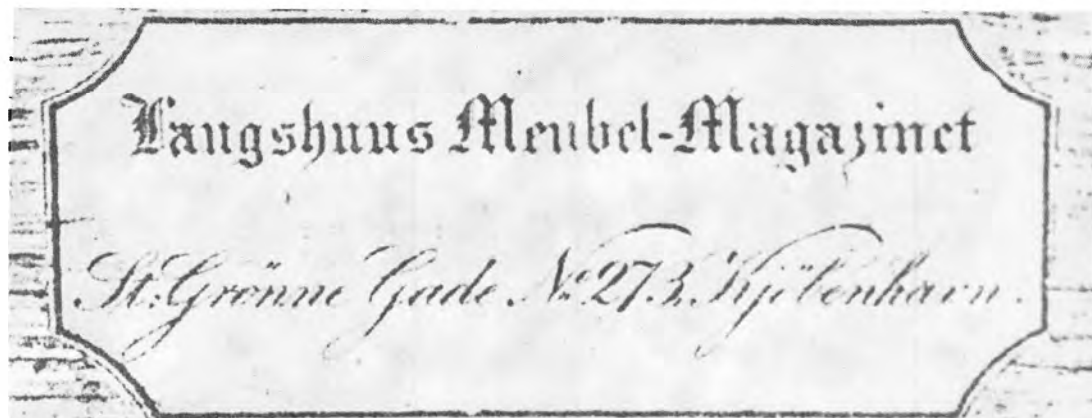 Laugshuus Meubel-Magazinet
St. Grönne Gade No 273. Kjöbenhavn.